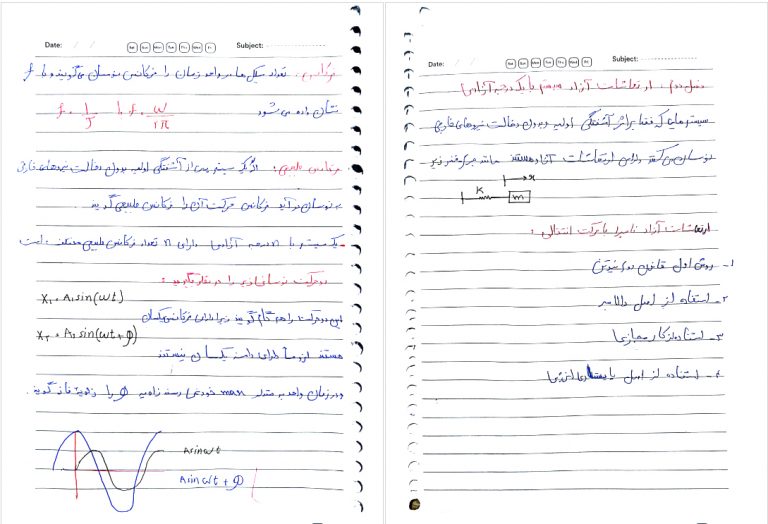 Date: / / Sat Sun Mon Tue Thu Wed Fri Subject:
فرکانس: تعداد سیکل ها بر واحد زمان را فرکانس نوسان می گویند و با f
نشان داده می شود f = 1/T یا f = ω/2π
فرکانس طبیعی: اگر یک سیستم پس از آشفتگی اولیه بدون دخالت نیروهای خارجی
به نوسان در آید فرکانس حرکت آن را فرکانس طبیعی گویند
- یک سیستم با n درجه آزادی دارای n تعداد فرکانس طبیعی است
دو حرکت نوسانی زیر را در نظر بگیرید:
X₁ = A₁ sin(ωt)
این دو حرکت را هم گام گویند زیرا دارای فرکانس یکسان
X₂ = A₂ sin(ωt+φ)
هستند اما دارای دامنه یکسان نیستند
و در زمان واحد به مقدار max خود نمی رسند زاویه φ را زاویه فاز گویند.
A sin ωt
A sin ωt + φ
Date: / / Sat Sun Mon Tue Thu Wed Fri Subject:
فصل دوم: ارتعاشات آزاد سیستم با یک درجه آزادی
سیستم هایی که فقط بر اثر آشفتگی اولیه و بدون دخالت نیروهای خارجی
نوسان می کنند دارای ارتعاشات آزاد هستند مانند جرم و فنر زیر
x
K m
ارتعاشات آزاد نامیرا با حرکت انتقالی:
1- روش اول قانون دوم نیوتن
2- استفاده از اصل دالامبر
3- استفاده از کار مجازی
4- استفاده از اصل بقای انرژی